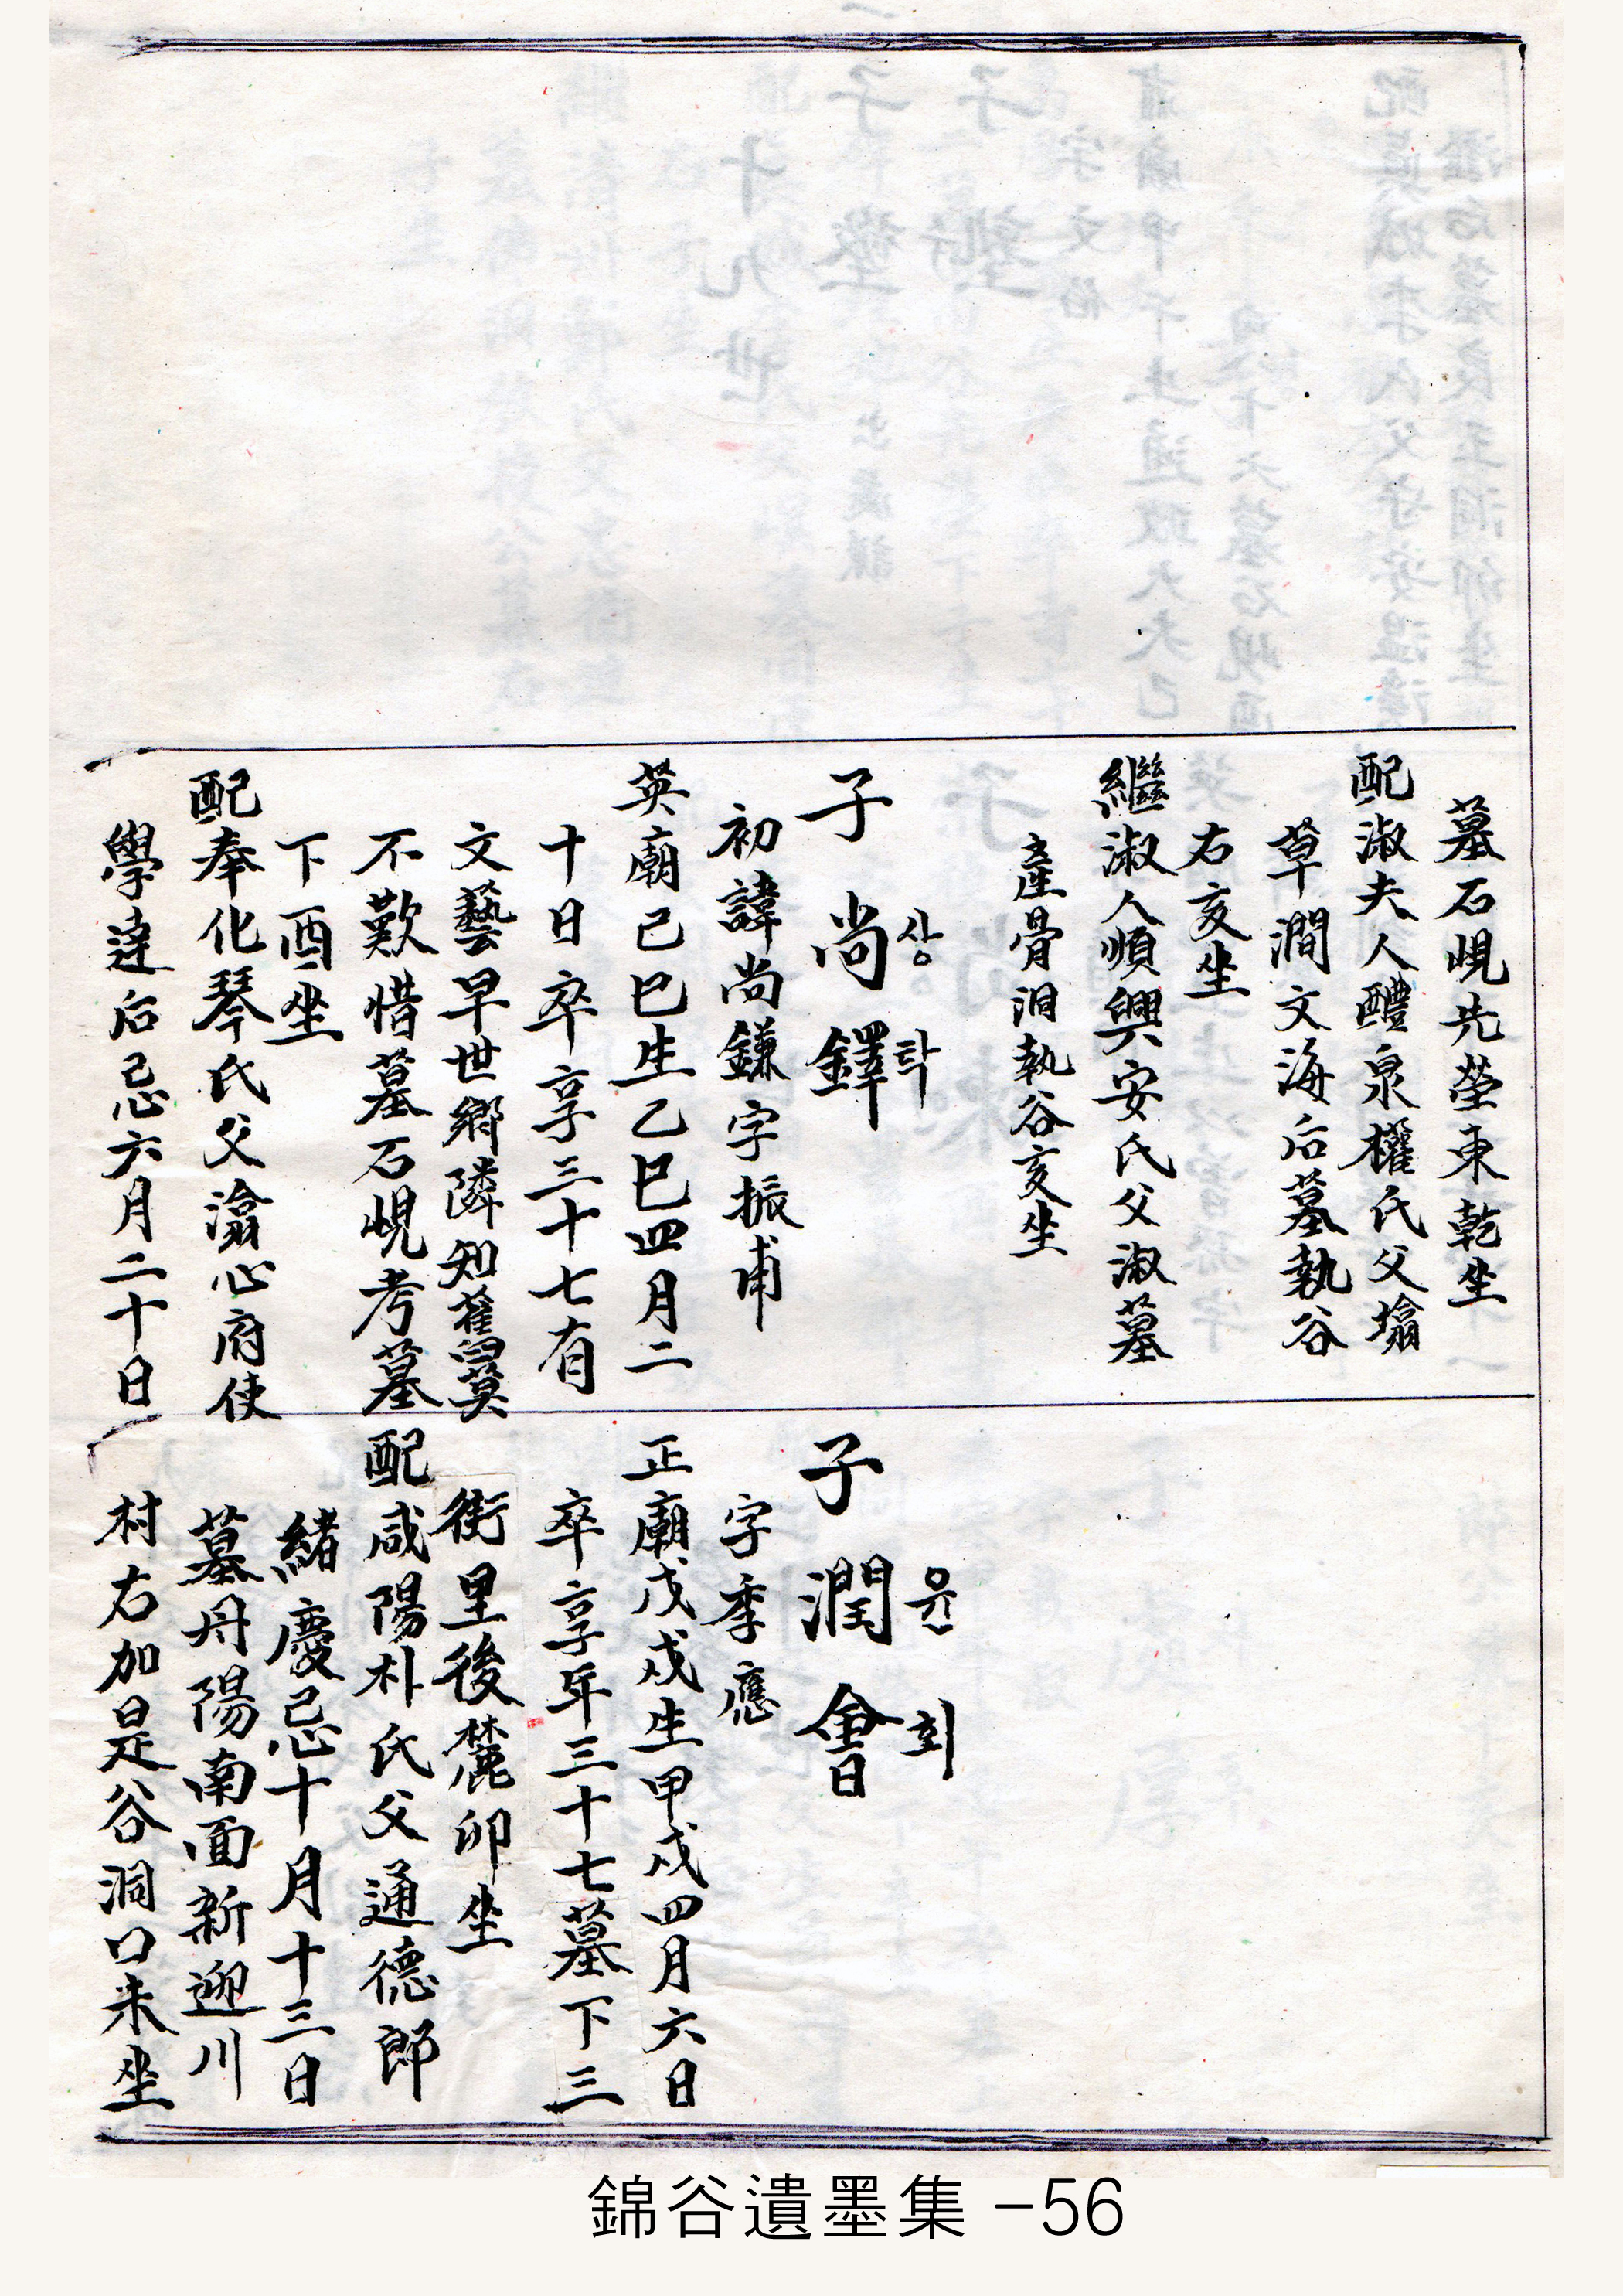 墓石峴先塋東乾坐
配淑夫人醴泉權氏父塕
草澗文海后墓執谷
右亥坐
繼淑人順興安氏父淑墓
產骨洞執谷亥坐
子 尚鐸
상탁
初諱尚鎌字振甫
英廟己巳生乙巳四月二
十日卒享三十七有
文藝早世鄉隣知舊莫
不歎惜墓石峴考墓
下酉坐
配奉化琴氏父瀹心府使
學達后忌六月二十日
子 潤會
윤회
字季應
正廟戊戌生甲戌四月六日
卒享年三十七墓下三
街里後麓卯坐
配咸陽朴氏父通德郎
緒慶忌十月十三日
墓丹陽南面新迎川
村右加是谷洞口未坐
錦谷遺墨集 -56